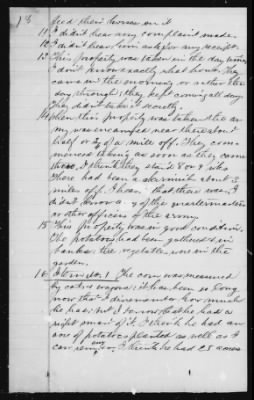 18 feed their horses on it
11 I didn't hear any complaint made.
12 I didn't hear him ask for any receipt.
13 This property was taken in the day time,
I don't know exactly what hour; they
came in the morning or
day through; they kept coming all day.
They didn't take it secretly.
14 When this property was taken the ar
my was encamped near there about
half or 3/4 of a mile off. They com
menced taking as soon as they came
I think they staid 8 or 9
There had been a skirmish about 3
miles off. I know that there was; I
didn't know any of the quartermasters
or other officers of the army.
15 This property was in good condition.
The potatoes had been gathered & in
banks; the vegetables were in the
garden.
16 Item No. 1 The corn was measured
by it has been so long
now that I disremember how much
he had; but I know that he had a
right smart of it. I think he had an
acre of potatoes planted as well as I
can rem I think he had 25 acres